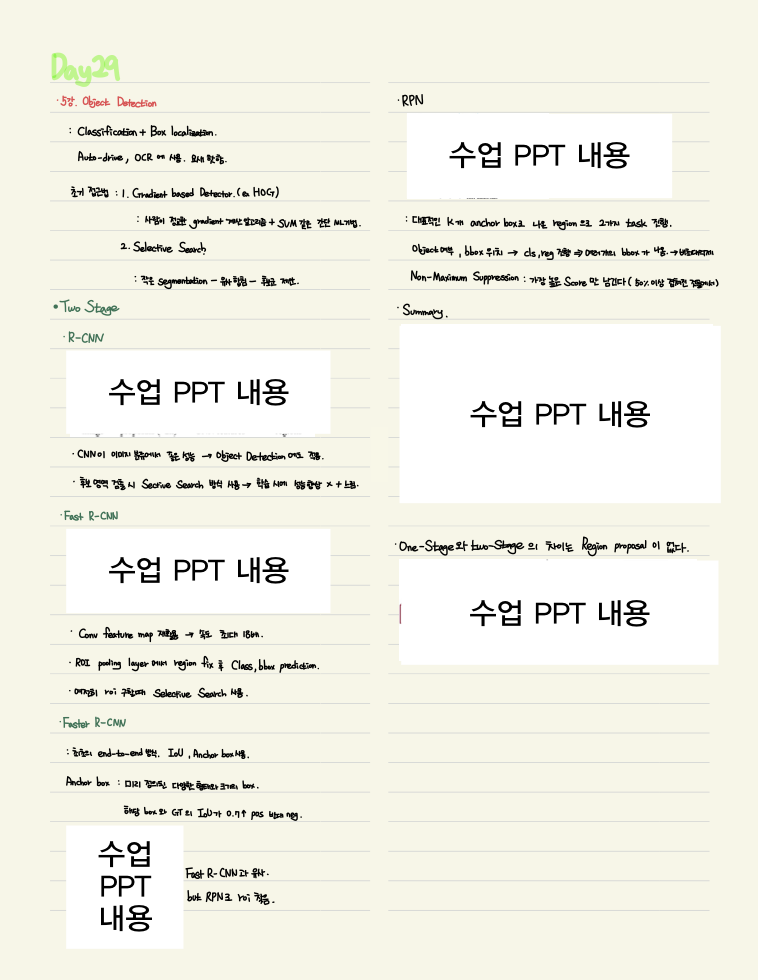 Day29
·5강. Object Detection
: Classification + Box localization.
Auto-drive, OCR 에 사용. 요새 핫함.
초기 접근법 : 1. Gradient based Detector. (ex HOG)
: 사람이 정교한 gradient 계산 알고리즘 + SVM 같은 간단 ML기법.
2. Selective Search
: 작은 segmentation – 유사 합침 – 후보군 제안.
•Two Stage
·R-CNN
수업 PPT 내용
·CNN이 이미지 분류에서 좋은 성능 → Object Detection 에도 적용.
·후보 영역 검출 시 Sective Search 방식 사용 → 학습 시에 성능향상 x + 느림.
·Fast R-CNN
수업 PPT 내용
· Conv feature map 재활용 → 속도 최대 18배.
·ROI pooling layer 에서 region fix 후 Class, bbox prediction.
·여전히 roi 구할때 Selective Search 사용.
·Faster R-CNN
: 최초의 end-to-end 방식. IoU, Anchor box 사용.
Anchor box : 미리 정의된 다양한 형태와 크기의 box.
해당 box 와 GT 의 IoU가 0.7↑ pos 반대 neg.
수업
PPT
내용
Fast R-CNN과 유사.
but RPN으로 roi 찾음.
·RPN
수업 PPT 내용
: 대표적인 K개 anchor box로 나온 region 으로 2가지 task 진행.
Object 여부, bbox 위치 → cls, reg 진행 ⇒ 여러개의 bbox 가 나옴. →
Non-Maximum Suppression : 가장 높은 Score 만 남긴다 ( 50% 이상 겹쳐진 것들에서)
·Summary.
수업 PPT 내용
·One-Stage 와 two-Stage 의 차이는 Region proposal 이 없다.
수업 PPT 내용